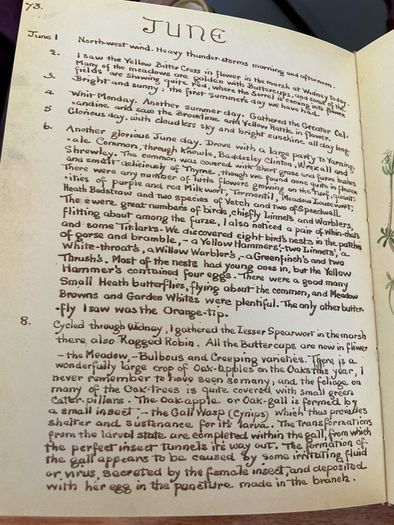 73.
JUNE
June 1 North-west wind. Heavy thunder-storms morning and afternoon.
2. I saw the Yellow Bitter Cress in flower in the marsh at Widney today.
Many of the meadows are golden with Buttercups, and some of the
fields are shewing quite red, where the Sorrel is coming into flower.
3. Bright and sunny; the first summer's day we have had.
4. Whit Monday. Another summer day. Gathered the Greater Cel-
-andine and saw the Brooklime and Yellow Rattle in flower.
5 Glorious day, with cloudless sky and bright sunshine all day long.
6. Another glorious June day. Drove with a large party to Yarning-
-ale Common, through Knowle, Baddesley Clinton, Wraxall and
Shrewley. The common was covered with short grass and furze bushes
and smelt deliciously of Thyme, though we found none quite in flower.
There were any number of little flowers growing on the turf, quant-
-ities of purple and red Milk wort, Tormentil, Meadow Louse-wort,
Heath Bedstraw and two species of Vetch and two of Speedwell.
There were great numbers of birds, chiefly Linnets and Warblers,
flitting about among the furze. I also noticed a pair of Whin-chats
and some Tit-larks. We discovered eight birds' nests in the patches
of gorse and bramble, – a Yellow Hammers', two Linnets', a
White-throat's, a Willow Warbler's, – a Greenfinch's and two
Thrush's. Most of the nests had young ones in, but the Yellow
Hammer's contained four eggs. There were a good many
Small Heath butterflies, flying about the common, and Meadow
Browns and Garden Whites were plentiful. The only other butter-
-fly I saw was the Orange-tip.
8. Cycled through Widney, I gathered the Lesser Spearwort in the marsh
there, also Ragged Robin. All the Buttercups are now in flower
– the Meadow, – Bulbous and Creeping varieties. There is a
wonderfully large crop of Oak-apples on the Oaks this year, I
never remember to have seen so many; and the foliage on
many of the Oak-Trees is quite covered with small green
cater-pillars. The Oak-apple or Oak-gall is formed by
a small insect: – the Gall Wasp (Cynips) which thus provides
shelter and sustenance for its larva. The transformations
from the larvel state are completed within the gall, from which
the perfect insect tunnels its way out. The formation of
the gall appears to be caused by some irritating fluid
or virus, secreted by the female insect, and deposited
with her egg in the puncture made in the branch.